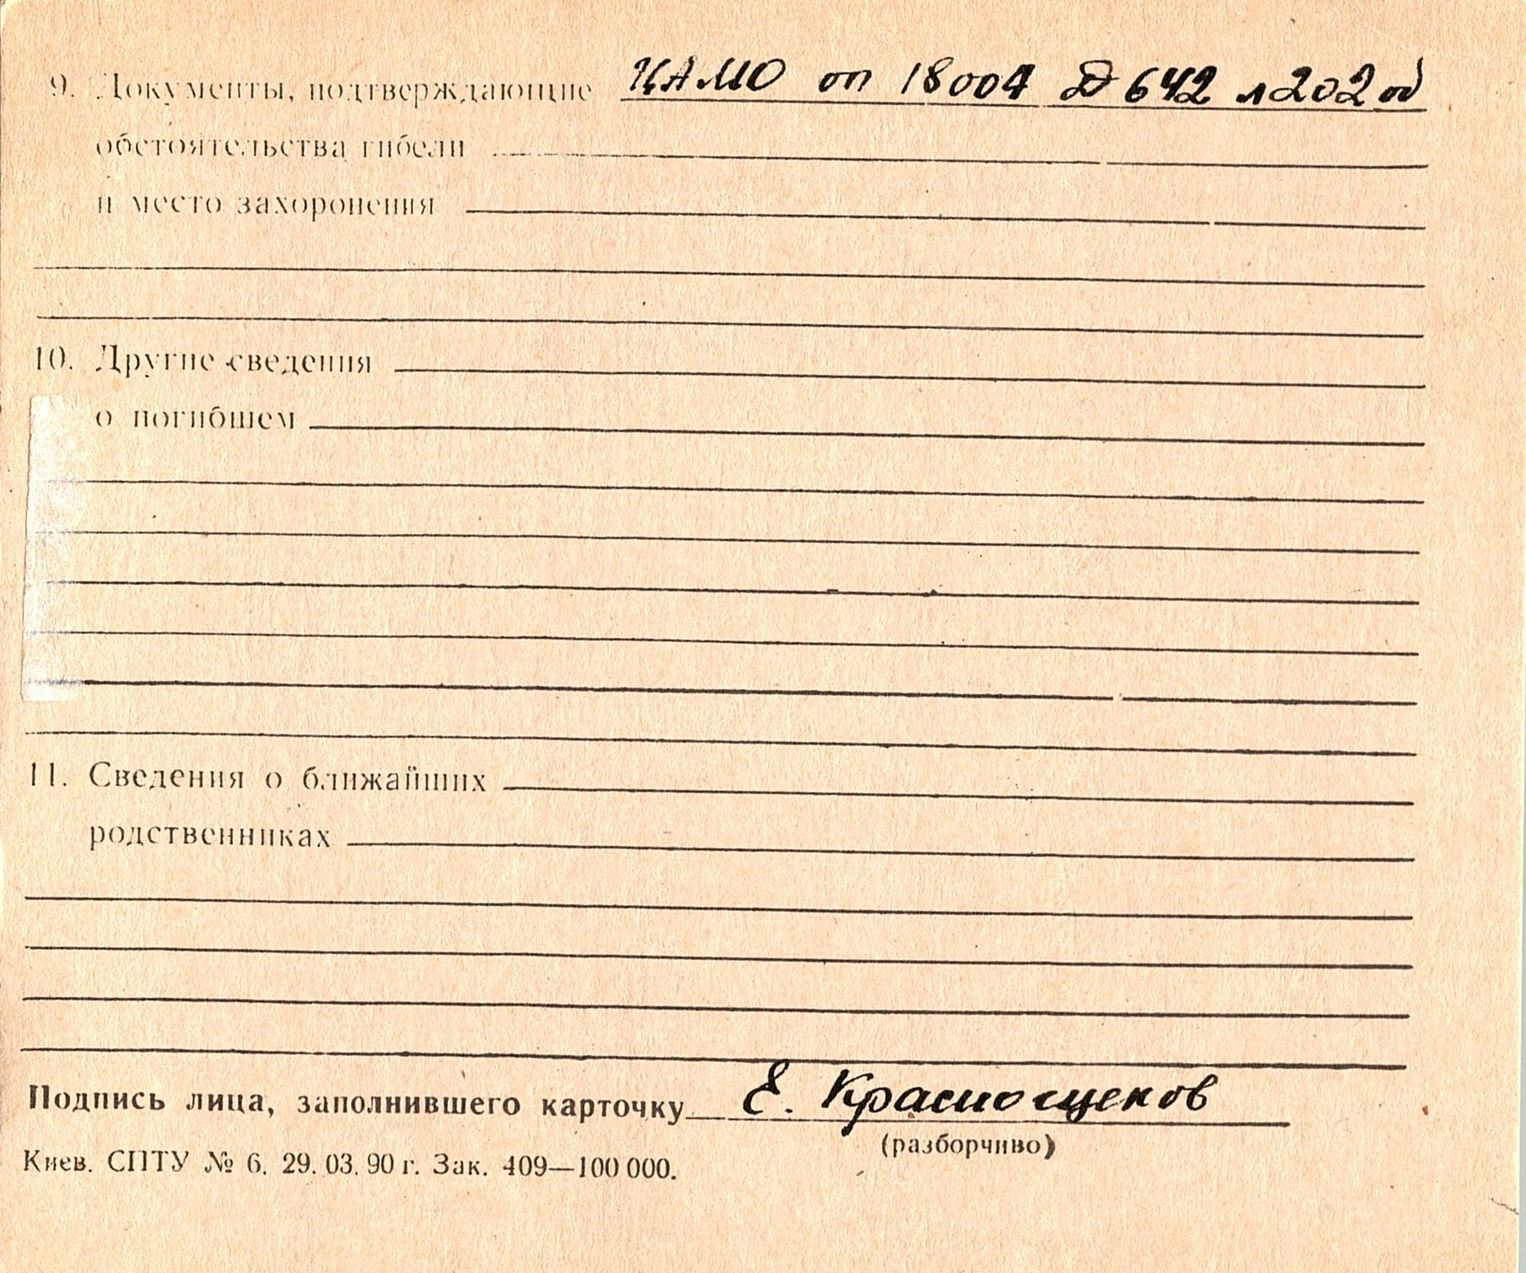 9. Документы, подтверждающие ЦАМО оп 18004 Д 642 л 202 об
обстоятельства гибели
и место захоронения
10. Другие сведения
о погибшем
11. Сведения о ближайших
родственниках
Подпись лица, заполнившего карточку Е. Краснощеков
(разборчиво)
Киев. СПТУ № 6. 29. 03. 90 г. Зак. 409—100 000.